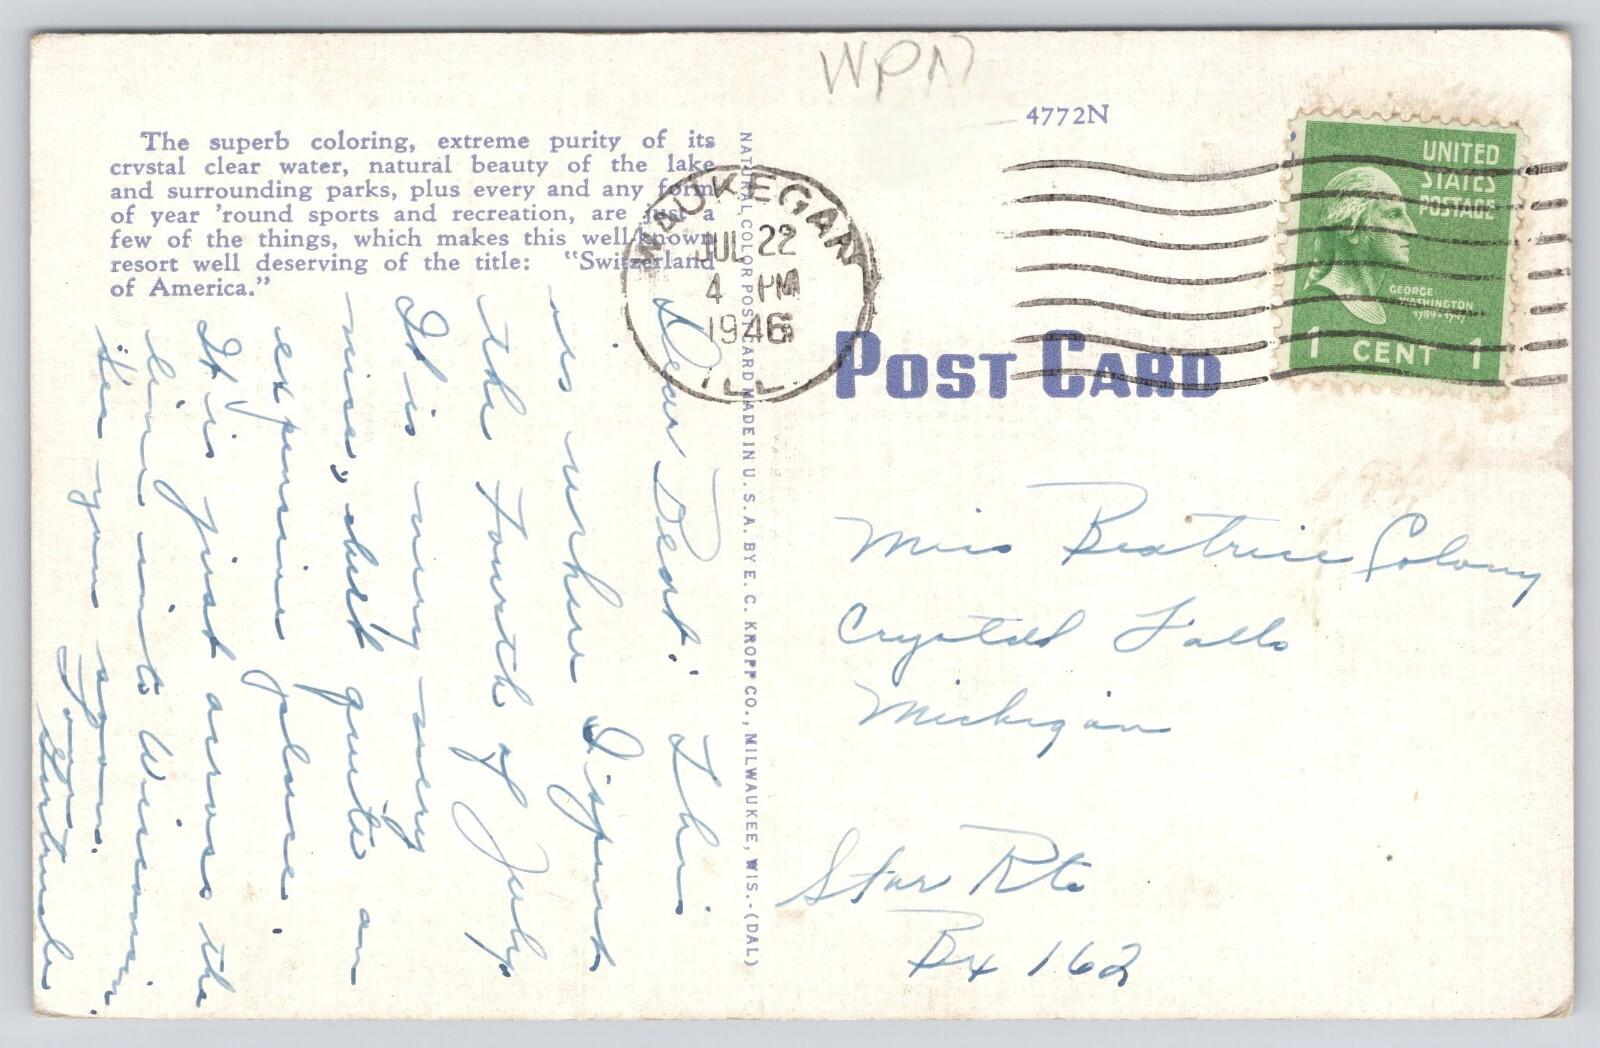 WPN
4772N
The superb coloring, extreme purity of its
crystal clear water, natural beauty of the lake
and surrounding parks, plus every and any form
of year 'round sports and recreation, are just a
few of the things, which makes this well-known
resort well deserving of the title: "Switzerland
of America."
NATURAL COLOR POST CARD MADE IN U.S.A. BY E. C. KROPP CO., MILWAUKEE, WIS.-(DAL)
WAUKEGAN
JUL 22
4 PM
1946
ILL.
UNITED
STATES
POSTAGE
GEORGE
WASHINGTON
1789-1797
1 CENT 1
POST CARD
Dear Beat: This
is where I spent
the Fourth of July
It is very very
nice, but quite an
expensive place.
It is just across the
line into Wisconsin.
See you soon.
Your
Gertrude
Miss Beatrice Colony
Crystal Falls
Michigan
Star Rte
Bx 162